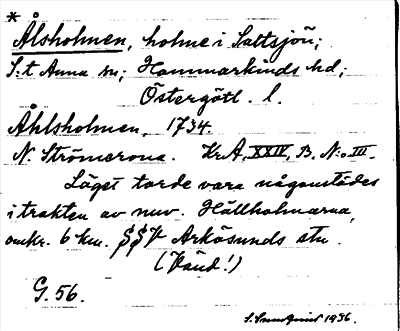 *
Ålsholmen, holme i Saltsjön;
S:t Anna sn; Hammarkinds hd;
Östergötl. l.
Åhlsholmen, 1734.
N. Strömcrona. Kr.A, XXIV, B, N:o III.
Läget torde vara någonstädes
i trakten av nuv. Hällholmarna,
omkr. 6 km. SSV Arkösunds stn.
(Vänd!)
G. 56.
1936.